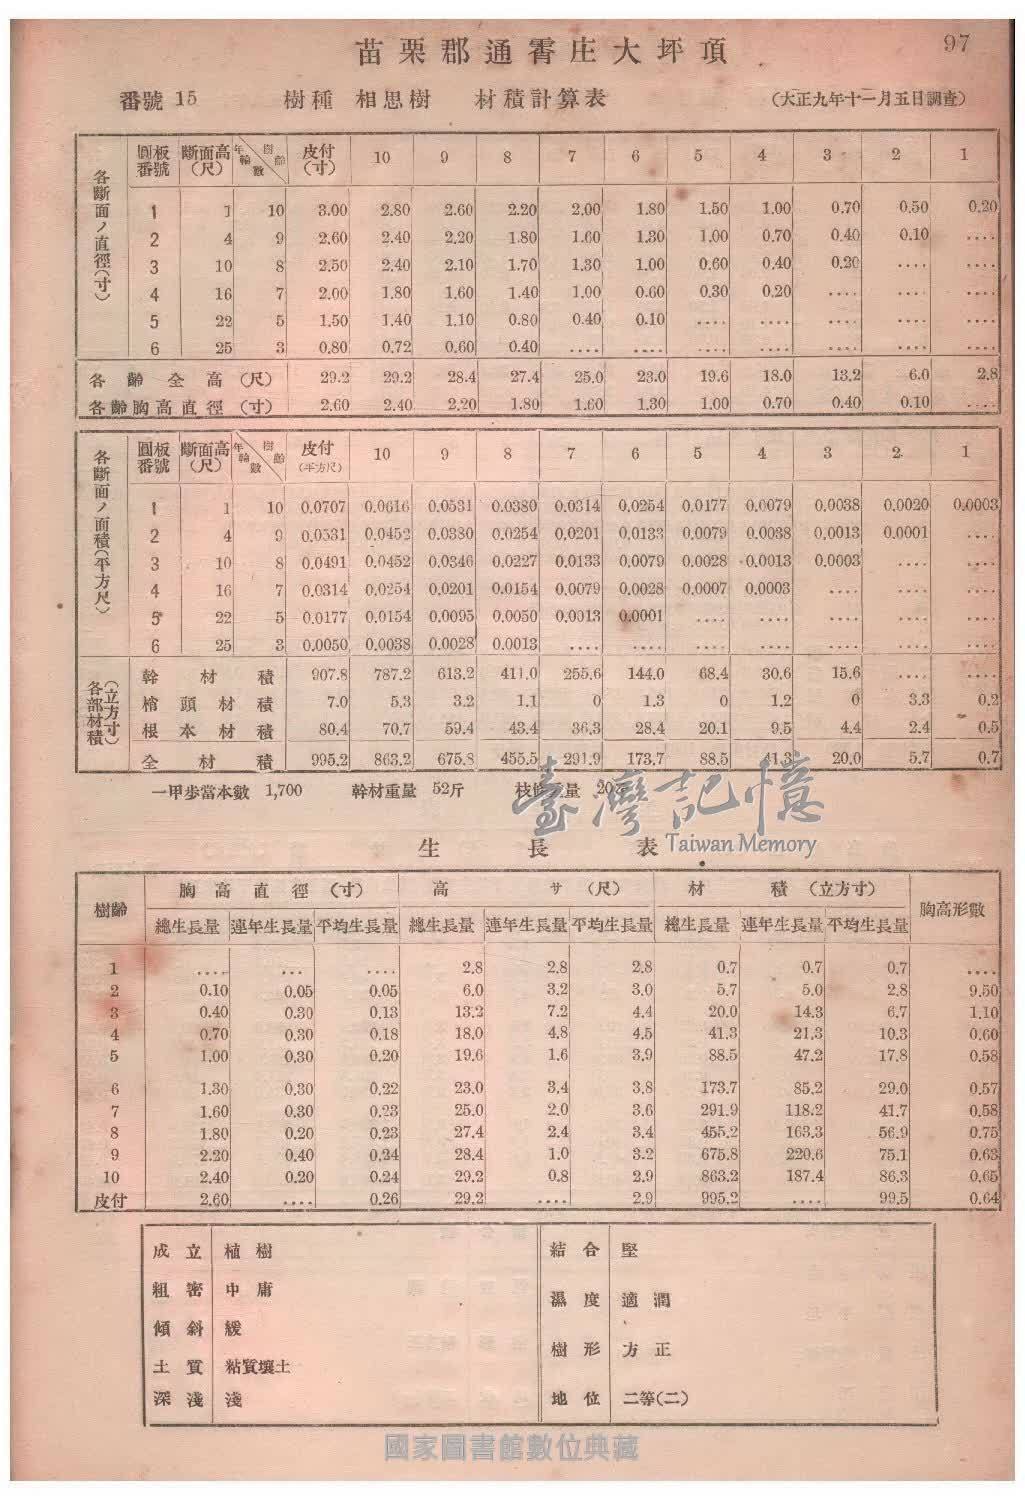 97
苗栗郡通霄庄大坪頂
番號 15 樹種 相思樹 材積計算表 (大正九年十一月五日調查)
各斷面ノ直徑(寸) 圓板番號 斷面高(尺) 年輪數 樹齡 皮付(寸) 10 9 8 7 6 5 4 3 2 1
1 1 10 3.00 2.80 2.60 2.20 2.00 1.80 1.50 1.00 0.70 0.50 0.20
2 4 9 2.60 2.40 2.20 1.80 1.60 1.30 1.00 0.70 0.40 0.10 ....
3 10 8 2.50 2.40 2.10 1.70 1.30 1.00 0.60 0.40 0.20 .... ....
4 16 7 2.00 1.80 1.60 1.40 1.00 0.60 0.30 0.20 .... .... ....
5 22 5 1.50 1.40 1.10 0.80 0.40 0.10 .... .... .... .... ....
6 25 3 0.80 0.72 0.60 0.40 .... .... .... .... .... .... ....
各齡全高(尺) 29.2 29.2 28.4 27.4 25.0 23.0 19.6 18.0 13.2 6.0 2.8
各齡胸高直徑(寸) 2.60 2.40 2.20 1.80 1.60 1.30 1.00 0.70 0.40 0.10 ....
各斷面ノ面積(平方尺) 圓板番號 斷面高(尺) 年輪數 樹齡 皮付(平方尺) 10 9 8 7 6 5 4 3 2 1
1 1 10 0.0707 0.0616 0.0531 0.0380 0.0314 0.0254 0.0177 0.0079 0.0038 0.0020 0.0003
2 4 9 0.0531 0.0452 0.0380 0.0254 0.0201 0.0133 0.0079 0.0038 0.0013 0.0001 ....
3 10 8 0.0491 0.0452 0.0346 0.0227 0.0133 0.0079 0.0028 0.0013 0.0003 .... ....
4 16 7 0.0314 0.0254 0.0201 0.0154 0.0079 0.0028 0.0007 0.0003 .... .... ....
5 22 5 0.0177 0.0154 0.0095 0.0050 0.0013 0.0001 .... .... .... .... ....
6 25 3 0.0050 0.0038 0.0028 0.0013 .... .... .... .... .... .... ....
各部材積(立方寸) 幹材積 907.8 787.2 613.2 411.0 255.6 144.0 68.4 30.6 15.6 .... ....
梢頭材積 7.0 5.3 3.2 1.1 0 1.3 0 1.2 0 3.3 0.2
根本材積 80.4 70.7 59.4 43.4 36.3 28.4 20.1 9.5 4.4 2.4 0.5
全材積 995.2 863.2 675.8 455.5 291.9 173.7 88.5 41.3 20.0 5.7 0.7
一甲步當本數 1,700 幹材重量 52斤 枝條重量 20斤
臺灣記憶
Taiwan Memory
生長表
樹齡 胸高直徑(寸) 高サ(尺) 材積(立方寸) 胸高形數
總生長量 連年生長量 平均生長量 總生長量 連年生長量 平均生長量 總生長量 連年生長量 平均生長量
1 .... ... .... 2.8 2.8 2.8 0.7 0.7 0.7 ....
2 0.10 0.05 0.05 6.0 3.2 3.0 5.7 5.0 2.8 9.50
3 0.40 0.30 0.13 13.2 7.2 4.4 20.0 14.3 6.7 1.10
4 0.70 0.30 0.18 18.0 4.8 4.5 41.3 21.3 10.3 0.60
5 1.00 0.30 0.20 19.6 1.6 3.9 88.5 47.2 17.8 0.58
6 1.30 0.30 0.22 23.0 3.4 3.8 173.7 85.2 29.0 0.57
7 1.60 0.30 0.23 25.0 2.0 3.6 291.9 118.2 41.7 0.58
8 1.80 0.20 0.23 27.4 2.4 3.4 455.2 163.3 56.9 0.75
9 2.20 0.40 0.24 28.4 1.0 3.2 675.8 220.6 75.1 0.63
10 2.40 0.20 0.24 29.2 0.8 2.9 863.2 187.4 86.3 0.65
皮付 2.60 .... 0.26 29.2 .... 2.9 995.2 .... 99.5 0.64
成立 植樹 結合 堅
粗密 中庸 濕度 適潤
傾斜 緩 樹形 方正
土質 粘質壤土
深淺 淺 地位 二等(二)
國家圖書館數位典藏